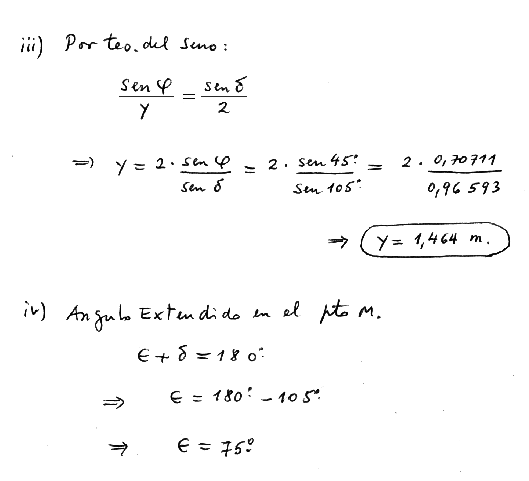 iii) Por teo. del seno:
sen φ / y = sen δ / 2
=) y = 2 · sen φ / sen δ = 2 · sen 45° / sen 105° = 2 · 0,70711 / 0,96593
⇒ y = 1,464 m.
iv) Angulo Extendido en el pto M.
ϵ + δ = 180°
⇒ ϵ = 180° - 105°
⇒ ϵ = 75°